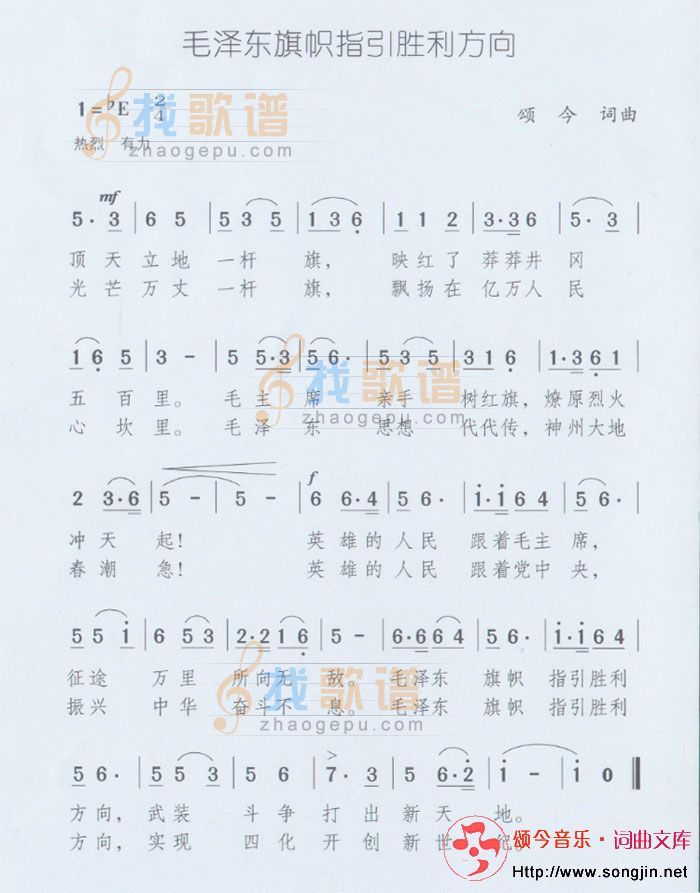 毛泽东旗帜指引胜利方向
1=♭E 2/4
颂今 词曲
热烈 有力
找歌谱
zhaogepu.com
mf
5· 3 | 6 5 | 5 3 5 | 1 3 6 | 1 1 2 | 3·3 6 | 5· 3 |
顶天立地一杆 旗， 映红了 莽莽井 冈
光芒万丈一杆 旗， 飘扬在 亿万人 民
1 6 5 | 3 - | 5 5·3 | 5 6· | 5 3 5 | 3 1 6 | 1·3 6 1 |
五百里。 毛主席 亲手 树红旗，燎原烈火
心坎里。 毛泽东 思想 代代传，神州大地
找歌谱
zhaogepu.com
f
2 3·6 | 5 - | 5 - | 6 6·4 | 5 6· | i·i 6 4 | 5 6· |
冲天 起！ 英雄的人民 跟着毛主席，
春潮 急！ 英雄的人民 跟着党中央，
5 5 i | 6 5 3 | 2·2 1 6 | 5 - | 6·6 6 4 | 5 6· | i·i 6 4 |
征途 万里 所向无 敌。毛泽东 旗帜 指引胜利
振兴 中华 奋斗不 息。毛泽东 旗帜 指引胜利
找歌谱
zhaogepu.com
5 6· | 5 5 3 | 5 6 | 7· 3 | 5 6·2 | i - | i 0 ‖
方向，武装 斗争打出新天 地。
方向，实现 四化开创新世 纪。
颂今音乐·词曲文库
Http://www.songjin.net